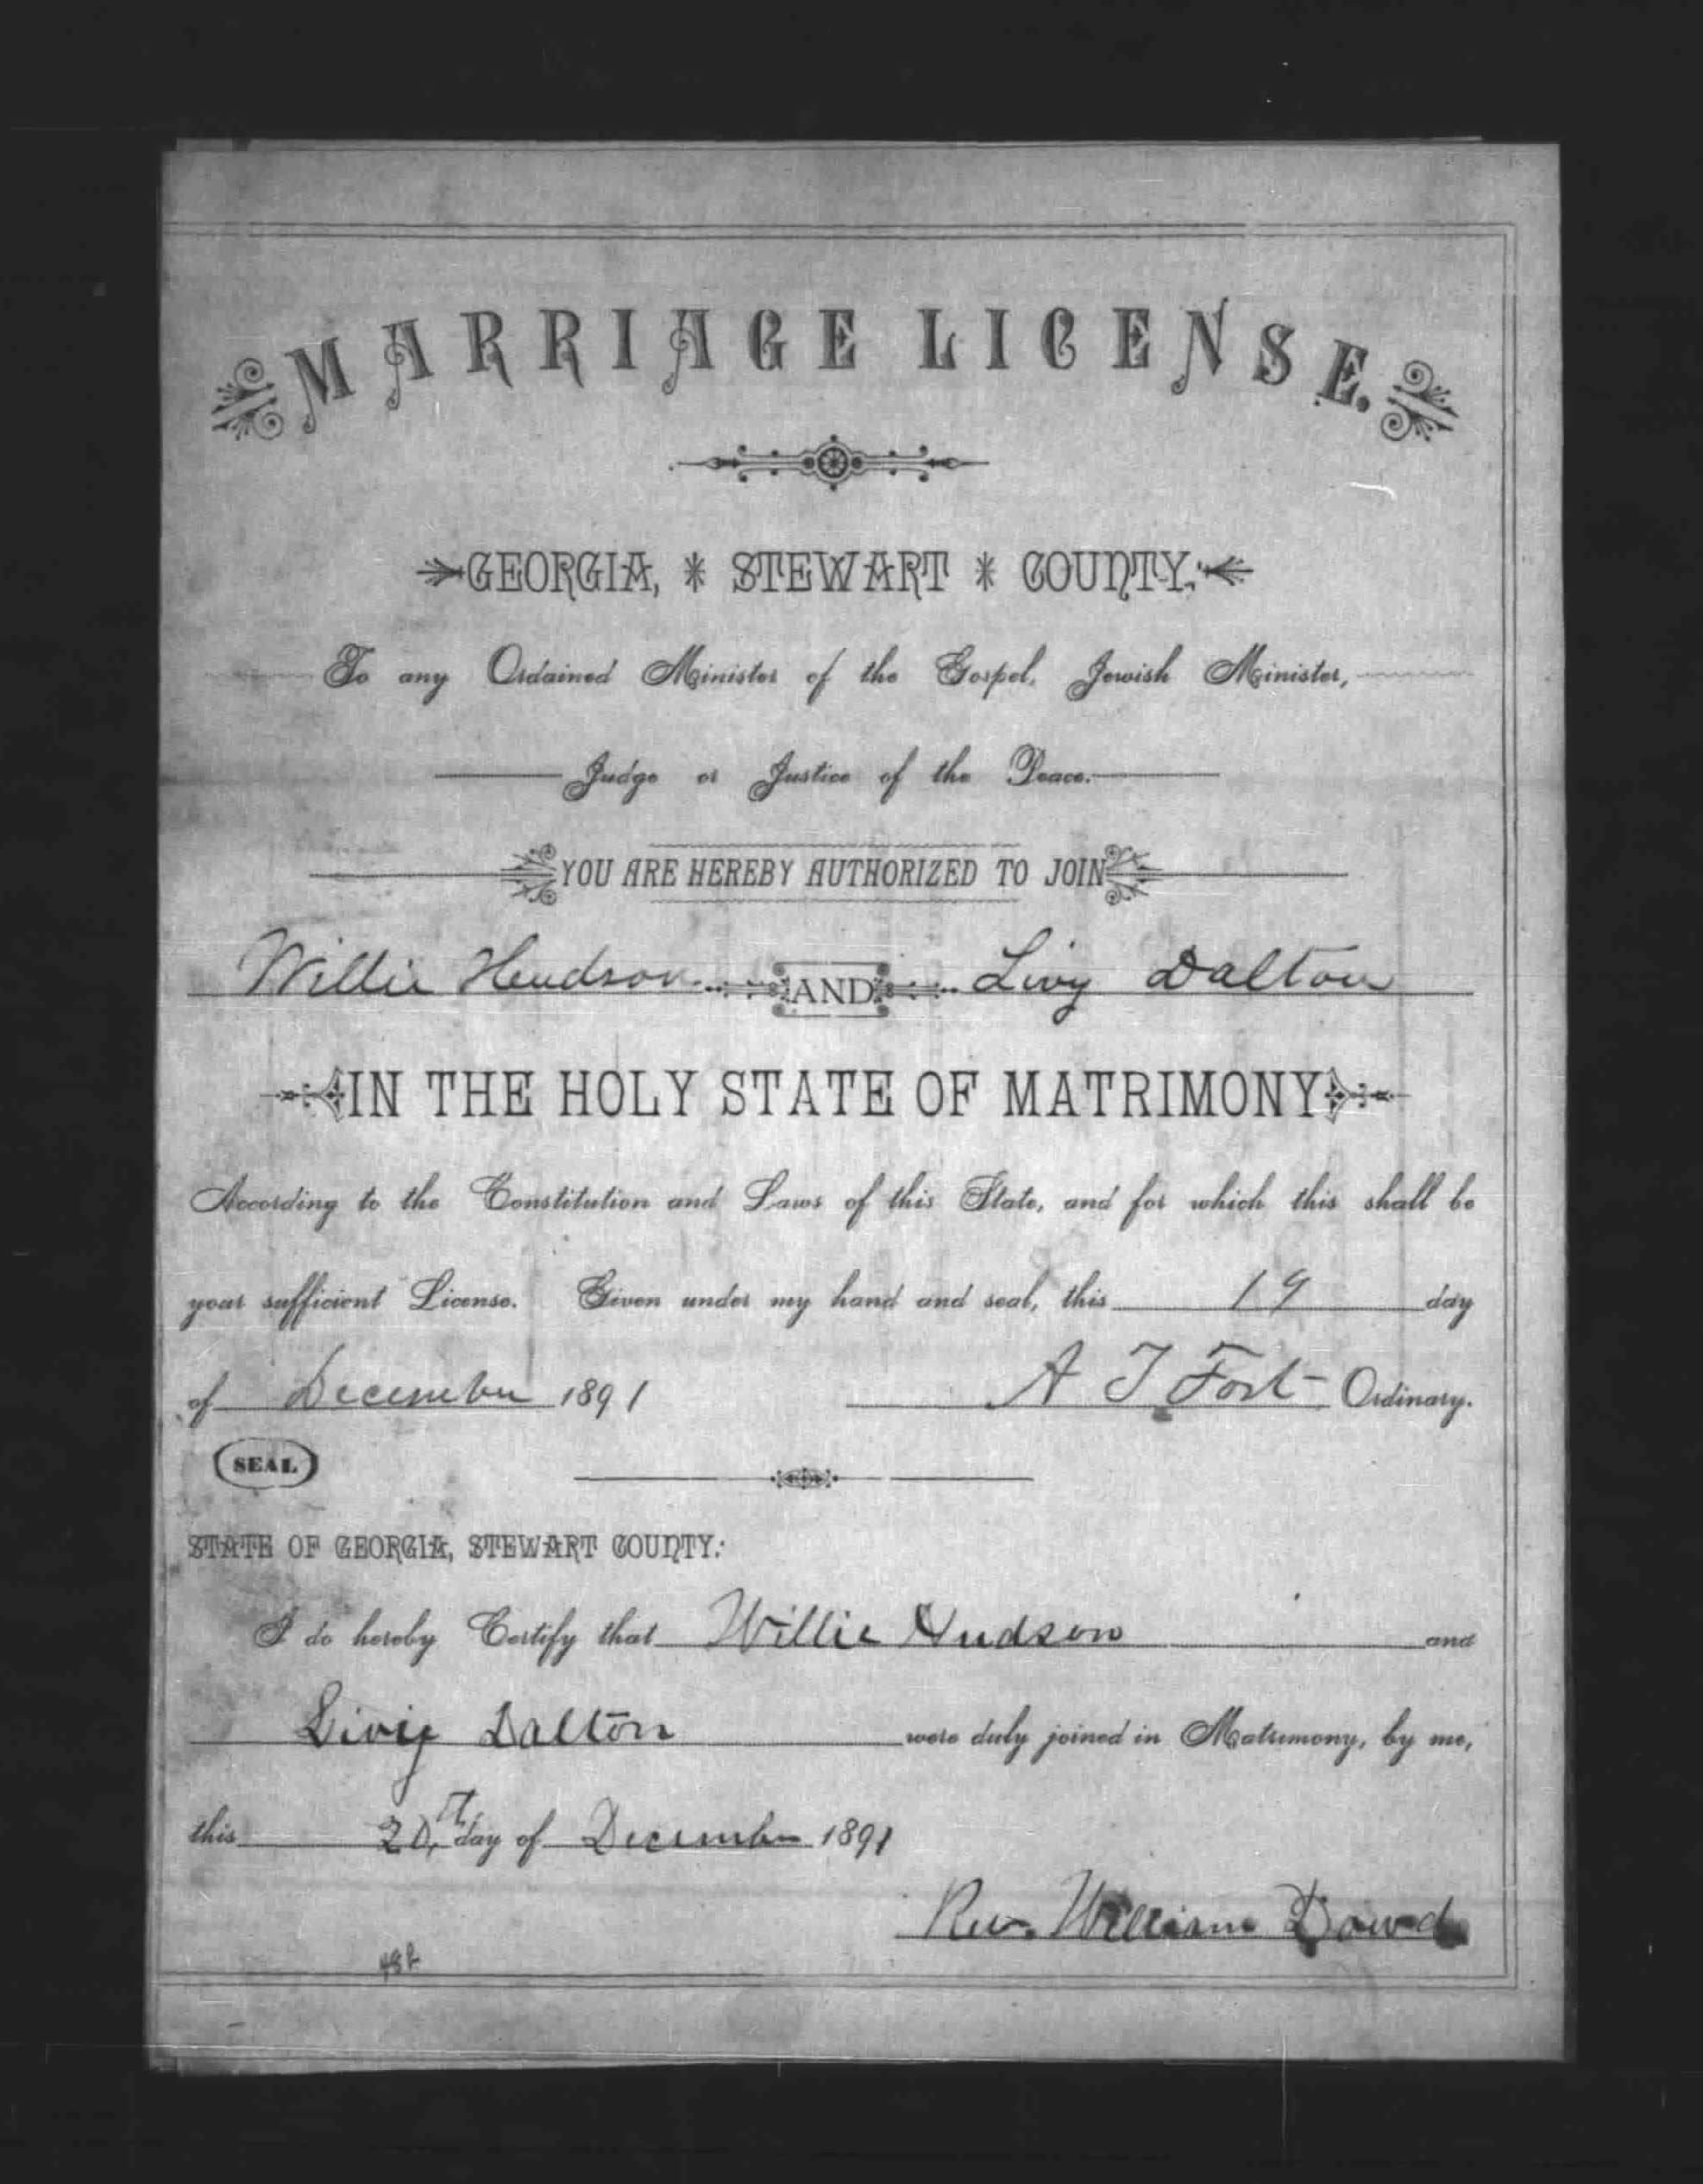 MARRIAGE LICENSE.
GEORGIA, * STEWART * COUNTY.
To any Ordained Minister of the Gospel, Jewish Minister,
Judge or Justice of the Peace.
YOU ARE HEREBY AUTHORIZED TO JOIN
Willie Hudson AND Livy Dalton
IN THE HOLY STATE OF MATRIMONY
According to the Constitution and Laws of this State, and for which this shall be
your sufficient License. Given under my hand and seal, this 19 day
of December 1891 A T Fort Ordinary.
SEAL
STATE OF GEORGIA, STEWART COUNTY:
I do hereby Certify that Willie Hudson and
Livig Dalton were duly joined in Matrimony, by me,
this 20th day of December 1891
Rev. William Dowd